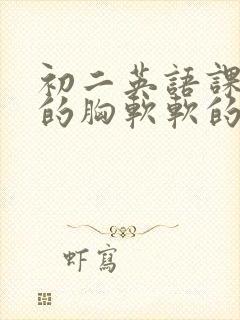 初二英語課
的胸軟軟的
虾寫